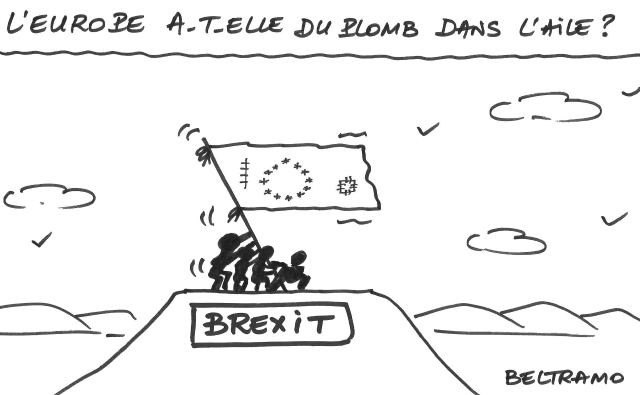 L'EUROPE A-T-ELLE DU PLOMB DANS L'AiLE ?
BREXiT
BELTRAMO